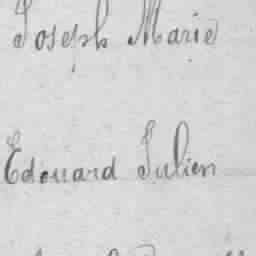 Joseph Marie
Edouard Julien